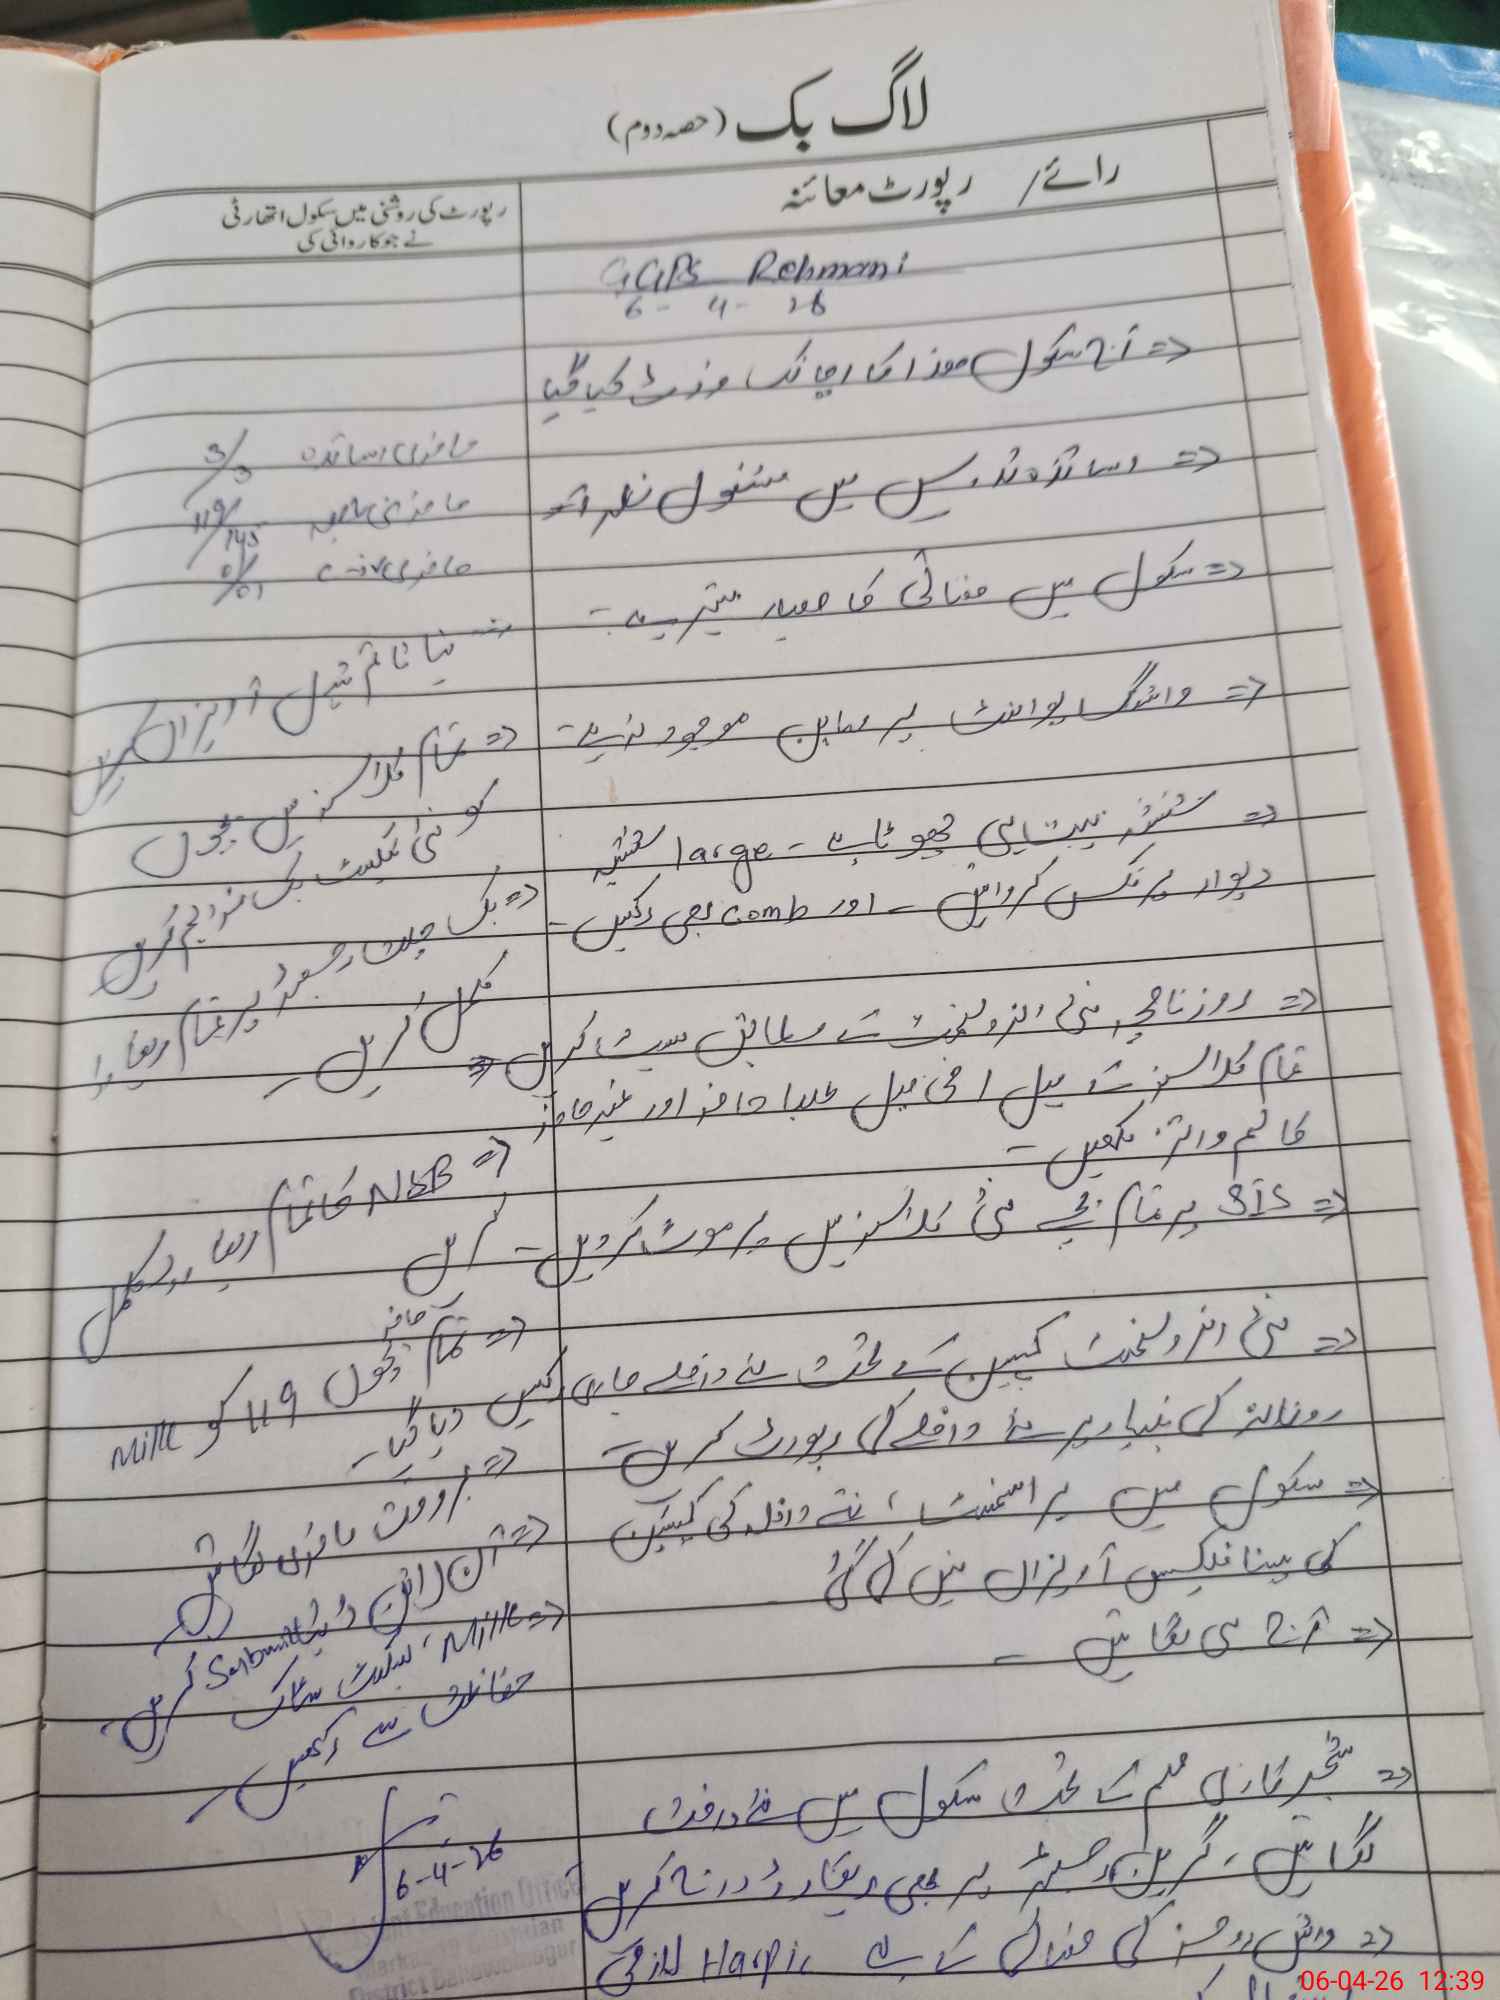 لاگ بک (حصہ دوم)
رائے / رپورٹ معائنہ
رپورٹ کی روشنی میں سکول اتھارٹی
نے جو کاروائی کی
GGPS Rehmani
6-4-26
⇐ آج سکول ھذا کا اچانک وزٹ کیا گیا
⇐ اساتذہ تدریس میں مشغول نظر آئے
⇐ سکول میں صفائی کا معیار بہتر ہے۔
⇐ واشنگ پوائنٹ پر صابن موجود نہ ہے۔
⇐ شیشہ نہایت ہی چھوٹا ہے۔ large شیشہ
دیوار پر فکس کروائیں۔ اور comb بھی رکھیں۔
⇐ روزنامچہ نئی انرولمنٹ کے مطابق سیٹ کریں
تمام کلاسز کے میل / فی میل طلبا حاضر اور غیر حاضر
کالم وائز لکھیں۔
⇐ SIS پر تمام بچے نئی کلاسز میں پرموٹ کردیں۔
⇐ نئی انرولمنٹ کمپین کے تحت نئے داخلے جاری رکھیں
روزانہ کی بنیاد پر نئے داخلے کی رپورٹ کریں۔
⇐ سکول میں نئے داخلہ کی کمپین
کی پینا فلیکس آویزاں نہیں کی گئی
⇐ آج ہی لگائیں۔
⇐ شجر کاری مہم کے تحت سکول میں نئے درخت
لگائیں، گرین رجسٹر پر بھی ریکارڈ درج کریں
⇐ واش رومز کی صفائی کے لیے Harpic لازمی
حاضری اساتذہ 3/3
حاضری طلبہ 119/145
حاضری 01/01
نیا ٹائم ٹیبل آویزاں کریں
⇐ تمام کلاسز میں بچوں
کو نئی بک فراہم کریں
⇐ بک رجسٹر پر تمام ریکارڈ
مکمل کریں۔
⇐ NSB کا تمام ریکارڈ مکمل
کریں
⇐ تمام حاضر بچوں 119 کو Milk
دیا گیا۔
⇐ بروقت حاضری لگائیں
⇐ آن لائن ڈیٹا Submitt کریں
⇐ Milk، بسکٹ سٹاک
حفاظت سے رکھیں۔
6-4-26
Education Officer
Markaz
District Bahawalnagar
06-04-26 12:39